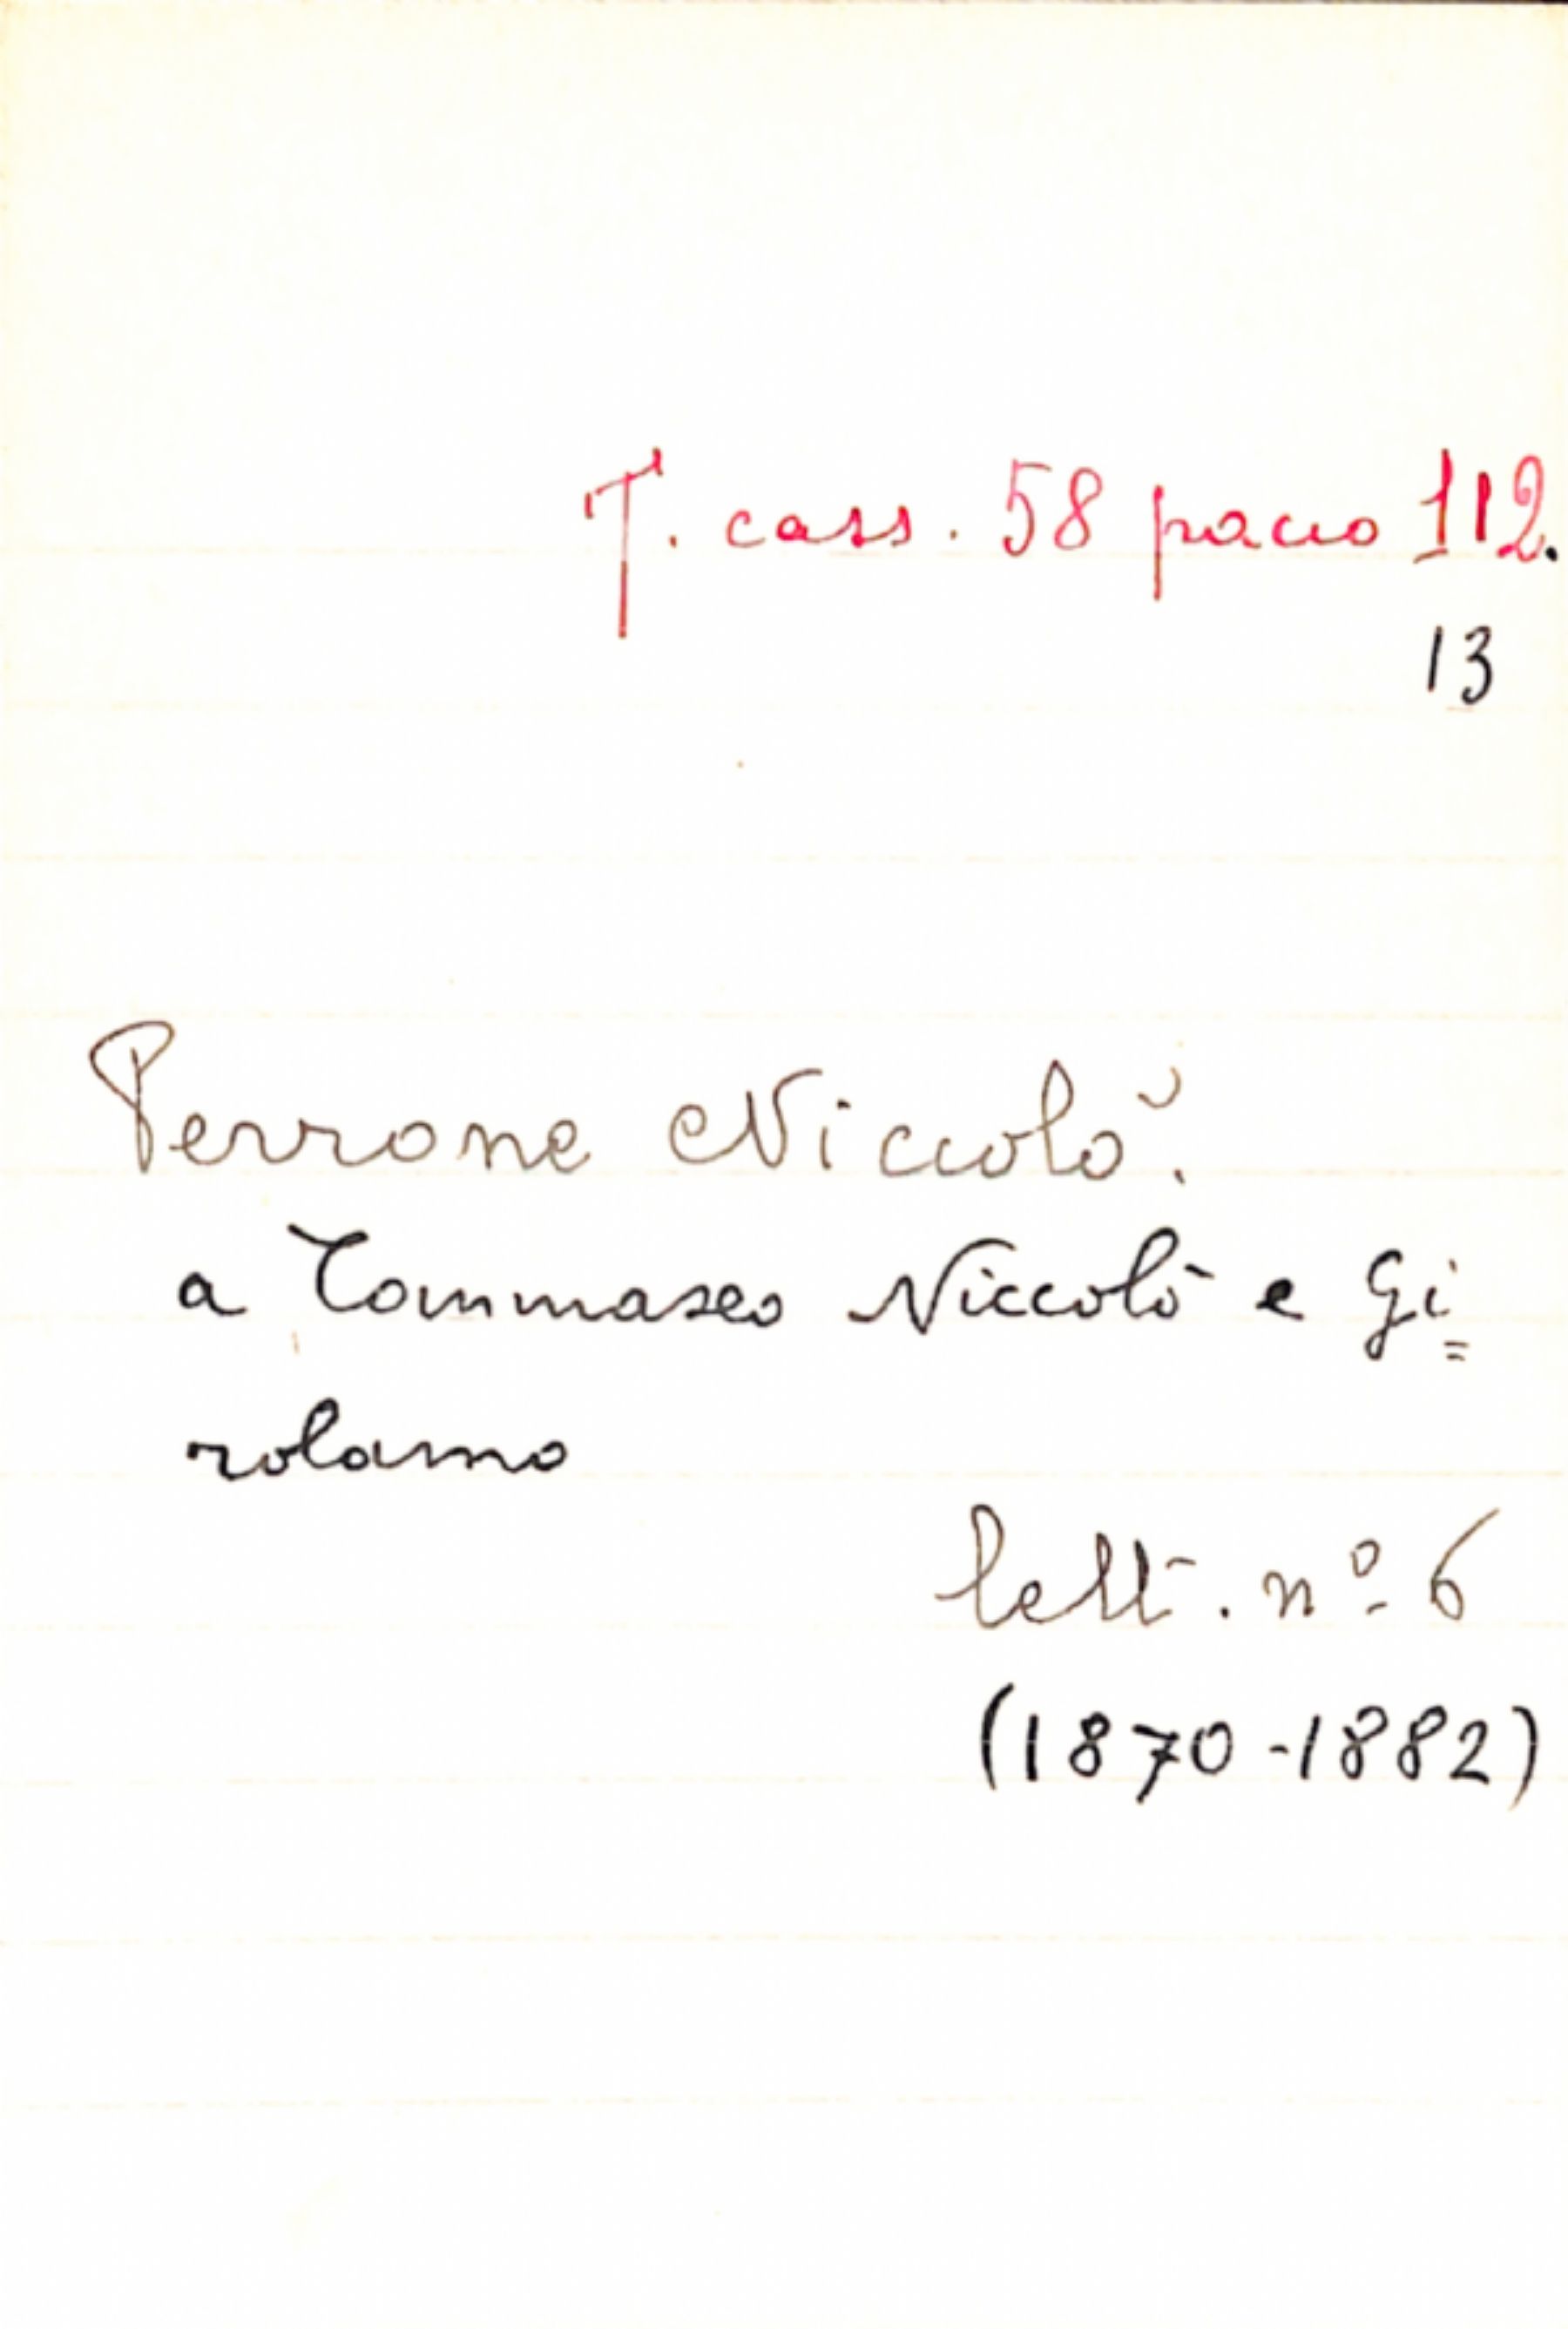 T. cass. 58 pacco 112.
13
Perrone Niccolò.
a Tommaseo Niccolò e Gi=
rolamo
lett. nº 6
(1870-1882)